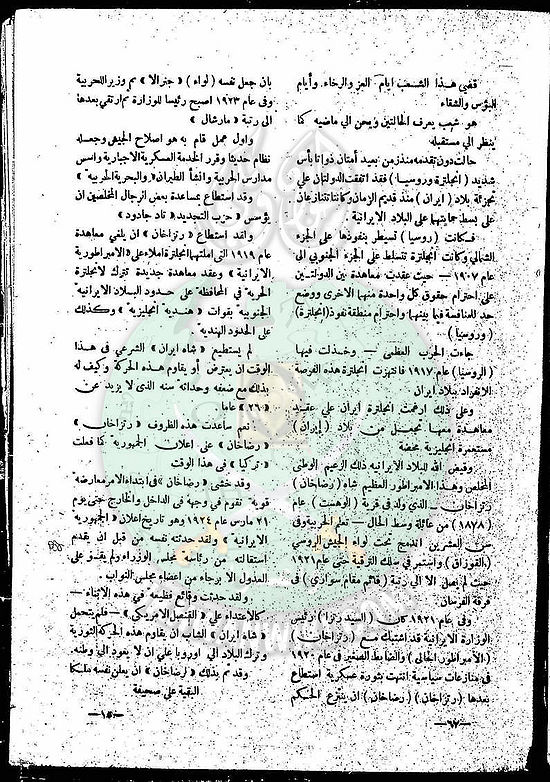 قضى هذا الشعب ايام العز والرخاء وأيام
البؤس والشقاء
هو شعب يعرف الحالتين ويحن الى ماضيه كا
ينظر الى مستقبله
حالت دون تقدمه منذ زمن بعيد أمتان ذواتا بأس
شديد ( انجلترة وروسيا ) فقد اتفقت الدولتان على
تجزئة بلاد ( ايران ) منذ قديم الزمان وكانتا تتنازعان
على بسط حمايتها على البلاد الايرانية
فكانت ( روسيا ) تسيطر بنفوذها على الجزء
الشمالى وكانت انجلترة تتسلط على الجزء الجنوبى الى
عام ١٩٠٧ — حيث عقدت معاهدة بين الدولتين
على احترام حقوق كل واحدة منهما الاخرى ووضع
حد للمنافسة فيما بينهما واحترام منطقة نفوذ (انجلترة)
( وروسيا )
جاءت الحرب العظمى — وخذلت فيها
( الروسيا ) عام ١٩١٧ فانتهزت انجلترة هذه الفرصة
للانفراد ببلاد ايران
وعلى ذلك ارغمت انجلترة ايران على عقد
معاهدة معها تجعل من بلاد ( ايران )
مستعمرة انجليزية محضة
وقيض الله للبلاد الايرانية ذلك الزعيم الوطنى
المخلص وهذا الامبراطور العظيم شاه ( رضاخان )
رتزاخان — الذى ولد فى قرية ( الوهست ) عام
( ١٨٧٨ ) من عائلة وسط الحال — تعلم الحربية وفى
سن العشرين اندمج تحت لواء الجيش الروسى
( القوزاق ) واستمر فى سلك الترقية حتى عام ١٩٢١
حيث لم يصل الا الى رتبة ( قائم مقام سوارى ) فى
فرقة الفرسان
وفى عام ١٩٢١ كان ( السيد رتزا ) رئيس
الوزارة الايرانية قد اشتبك مع ( رتزاخان )
( الامبراطور الحالى ) والضابط الصغير فى عام ١٩٢٠
فى منازعات سياسية انتهت بثورة عسكرية استطاع
بعدها ( رتزاخان ) ( رضاخان ) ان ينتزع الحكم
—٦٧—
بان جعل نفسه ( لواء ) « جنرالا » ثم وزير اللحربية
وفى عام ١٩٢٣ اصبح رئيسا للوزارة ثم ارتقى بعدها
الى رتبة « مارشال »
واول عمل قام به هو اصلاح الجيش وجعله
نظام حديثا وقرر الخدمة العسكرية الاجبارية واسس
مدارس الحربية وانشأ الطيران « والبحرية الحربية »
وقد استطاع بمساعدة بعض الرجال المخلصين ان
يؤسس « حزب التجديد » تاد جادود »
ولقد استطاع « رتزاخان » ان يلغى معاهدة
عام ١٩١٩ التى املتها انجلترة املاء على « الامبراطورية
الايرانية » وعقد معاهدة جديدة تترك لانجلترة
الحرية فى المحافظة على حدود البلاد الايرانية
الجنوبية بقوات « هندية انجليزية » وكذلك
على الحدود الهندية
لم يستطيع « شاه ايران » الشرعى فى هذا
الوقت ان يعترض أو يقاوم هذه الحركة وكيف له
بذلك مع ضعفه وحداثة سنه الذى لا يزيد عن
« ٢٦ » عاما
نعم ساعدت هذه الظروف « رتزاخان »
« رضاخان » على اعلان الجمهورية كا فعلت
« تركيا » فى هذا الوقت
وقد خشى « رضاخان » فى ابتداء الامر معارضة
قوية تقوم فى وجهة فى الداخل والخارج حتى يوم
٢١ مارس عام ١٩٢٤ وهو تاريخ اعلان « الجمهورية
الايرانية » ولقد حدثته نفسه من قبل ان يقدم
استقالته من رئاسة مجلس الوزراء ولم يقدم على
العدول الا برجاء من اعضاء مجلس النواب .
ولقد حدثت وقائع فظيعة فى هذه الاثناء —
كالاعتداء على « القنصل الامريكى » — فلم يتحمل
« شاه ايران » الشاب ان يقاوم هذه الحركة الثورية
وترك البلاد الى اوروبا على ان لا يعود الى وطنه .
وقد تم بذلك « لرضاخان » ان يعلن نفسه ملكا
البقية على صحيفة
—١٥—